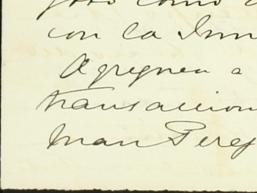 como
con la Inm
Agregnen a
transaccion
Juan Perez